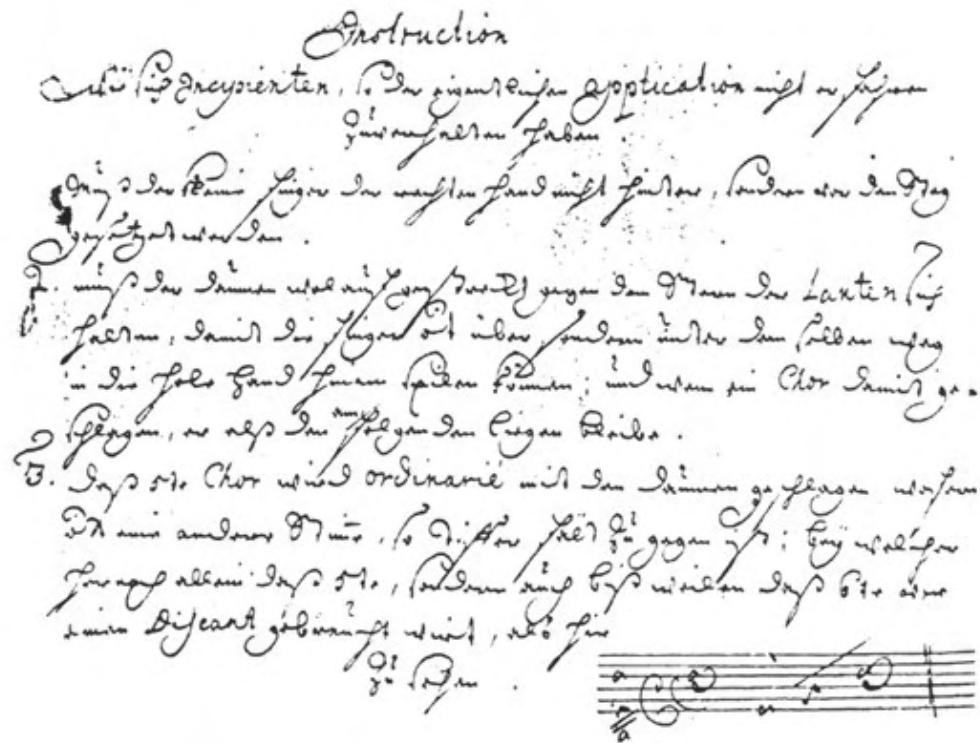 Instruction
Wie sich Incypienten, so der eigentlichen application nicht erfahren
zuverhalten haben.
Muß der kleine finger der rechten hand nicht hinter, sondern vor den Steg
gesetzet werden.
2. muß der daumen wol außgestreckt gegen dem Stern der Lauten sich
halten, damit die finger nit über, sondern unter dem selben weg
in die hole hand hinein spilen können; und wenn ein Chor damit ge=
schlagen, er alß dan am folgenden ligen bleibe.
3. daß 5te Chor wird ordinarie mit den daumen geschlagen wofern
nit eine andere Stime, so tieffer fält zu gegen ist; bey welcher
hernach allein daß 5te, sondern auch biß weilen daß 6te vor
einen Discant gebraucht wirt, alß hir
zu sehen.